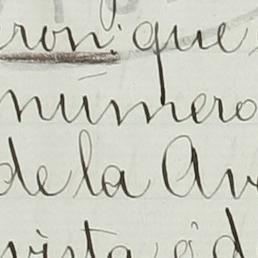 ron: que
numero
de la Av
vista ó d